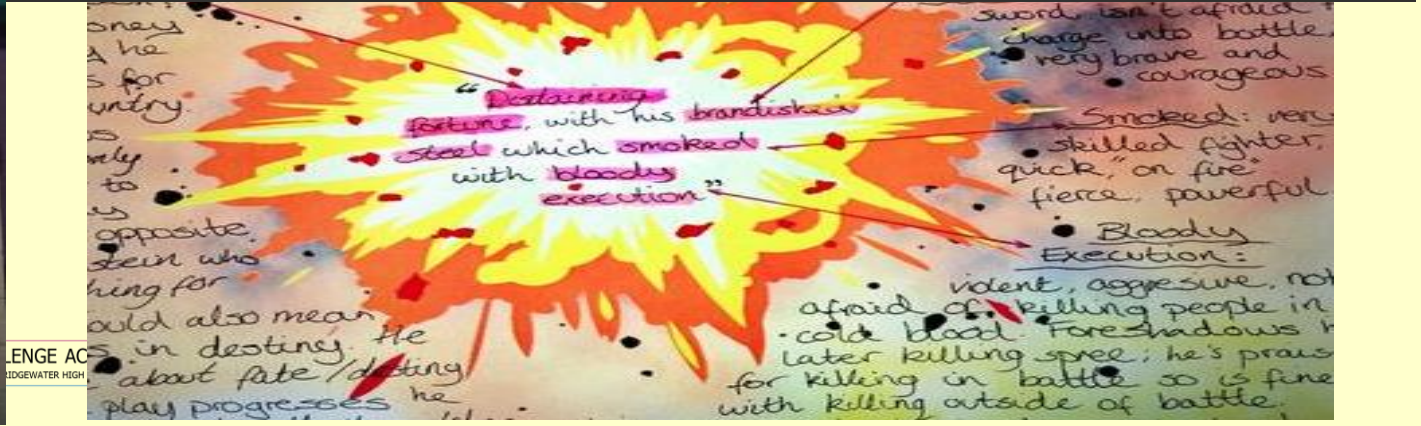 oney
he
s for
untry.
rely
to
opposite.
stein who
hing for
ould also mean
s in destiny. He
about fate/destiny
play progresses he
"Disdaining
fortune, with his brandished
steel which smoked
with bloody
execution"
sword, isn't afraid
charge into battle,
very brave and
courageous
Smoked: very
skilled fighter,
quick, "on fire"
fierce, powerful
Bloody
Execution:
violent, aggresive, not
afraid of killing people in
cold blood. Foreshadows h
later killing spree; he's prais
for killing in battle so is fine
with killing outside of battle.
LENGE AC
RIDGEWATER HIGH